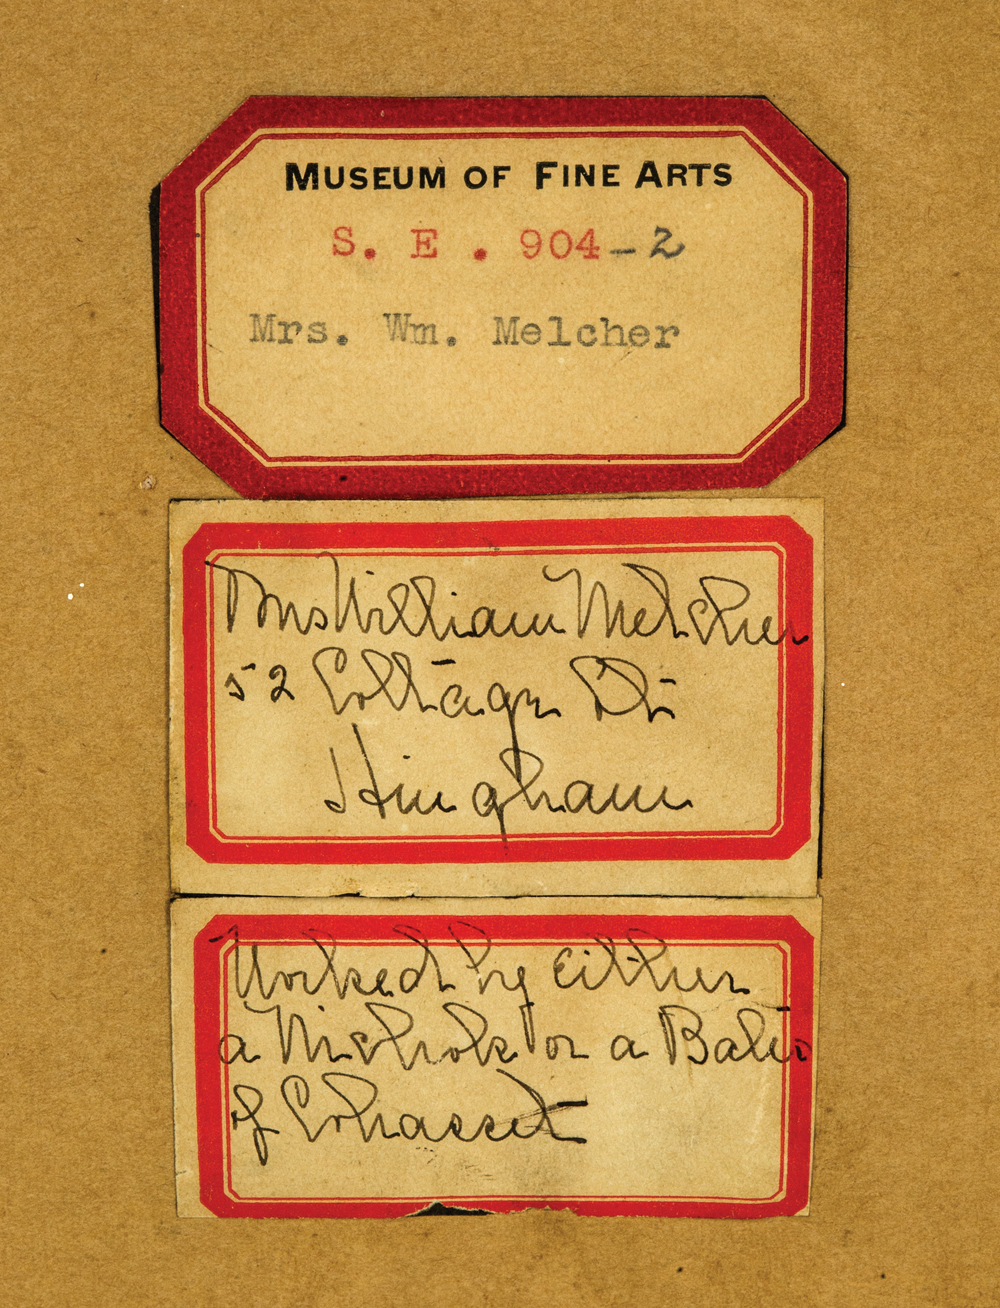 MUSEUM OF FINE ARTS
S. E. 904-2
Mrs. Wm. Melcher
Mrs William Melcher
52 Cottage St
Hingham
Worked by either
a Nichols or a Bates
of Cohasset